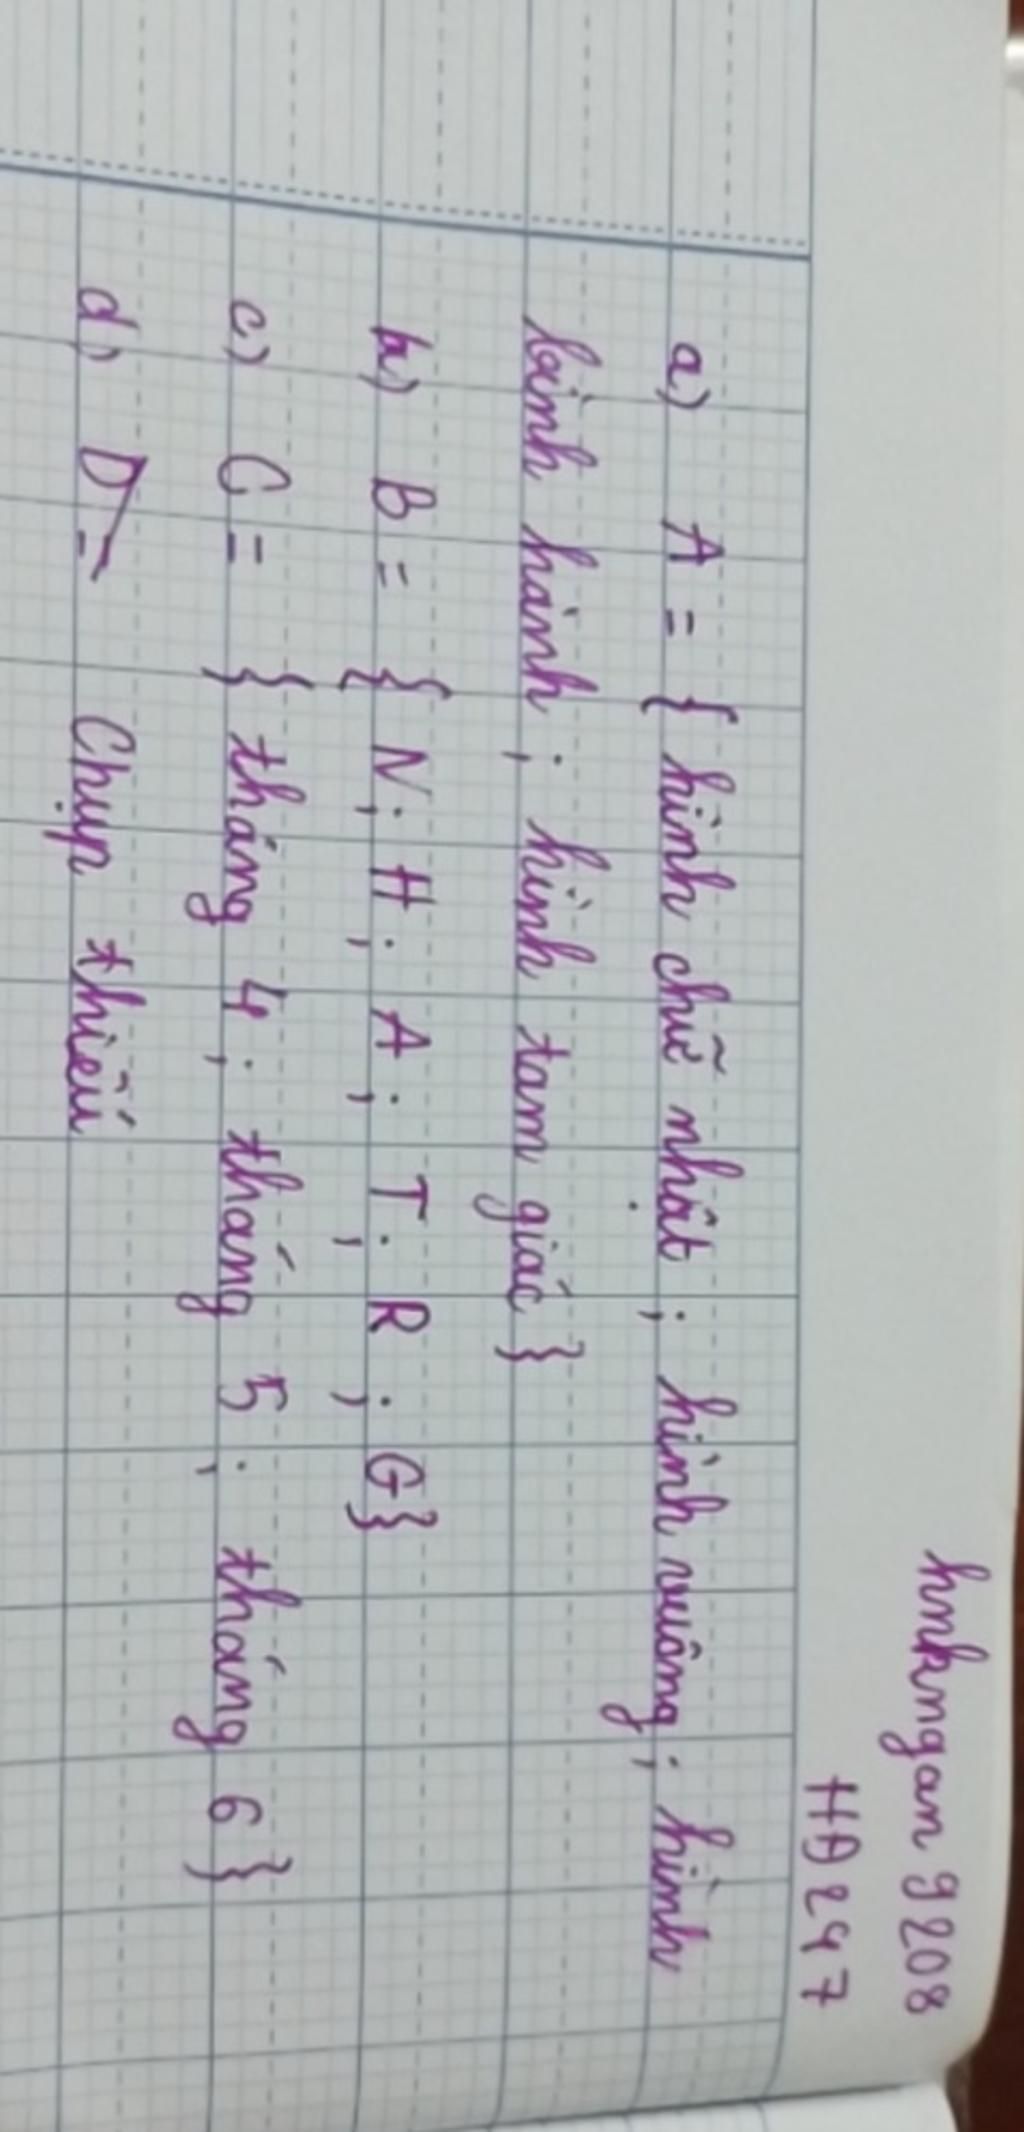 hnkngan9208
HĐ247
a) A = { hình chữ nhật ; hình vuông ; hình
bình hành ; hình tam giác }
b) B = { N ; H ; A ; T ; R ; G}
c) C = { tháng 4 ; tháng 5 ; tháng 6 }
d) D = Chụp thiếu